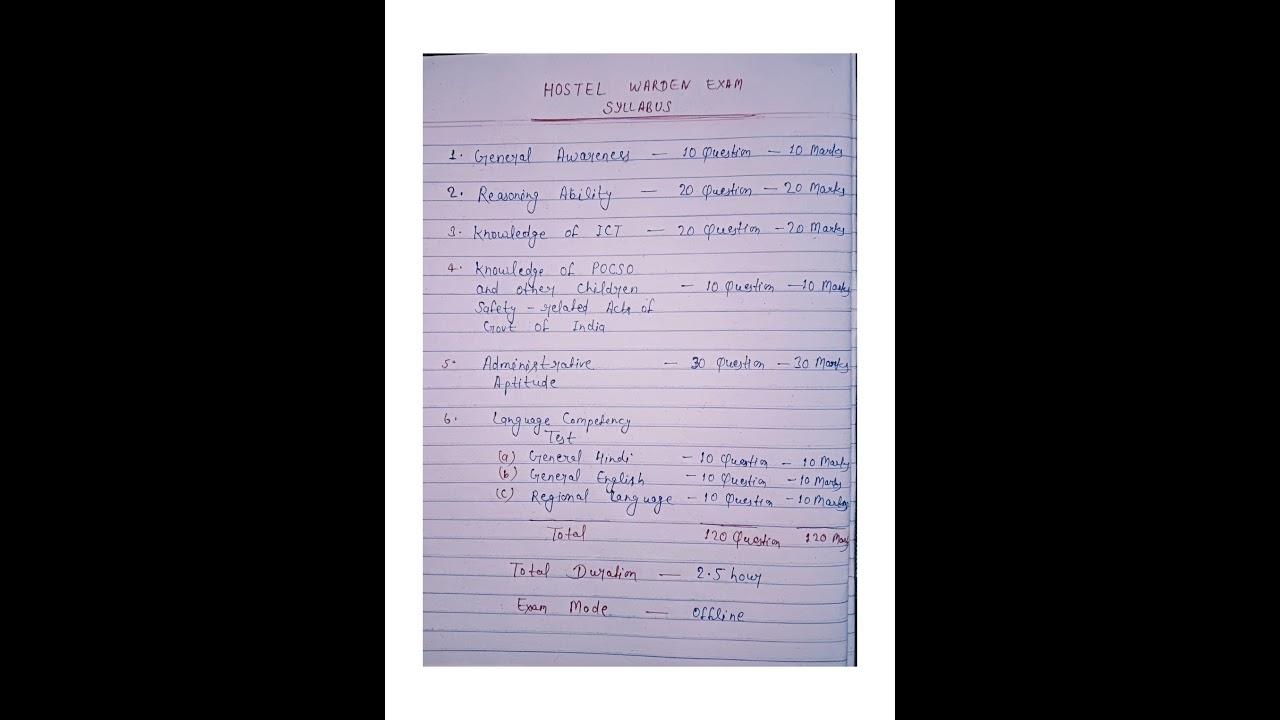 HOSTEL WARDEN EXAM
SYLLABUS
1. General Awareness — 10 Question — 10 Marks
2. Reasoning Ability — 20 Question — 20 Marks
3. Knowledge of ICT — 20 Question — 20 Marks
4. Knowledge of POCSO
and other Children — 10 Question — 10 Marks
Safety - related Acts of
Govt of India
5. Administrative — 30 Question — 30 Marks
Aptitude
6. Language Competency
Test
(a) General Hindi — 10 Question — 10 Marks
(b) General English — 10 Question — 10 Marks
(c) Regional Language — 10 Question — 10 Marks
Total 120 Question 120 Mar
Total Duration — 2.5 hour
Exam Mode — Offline